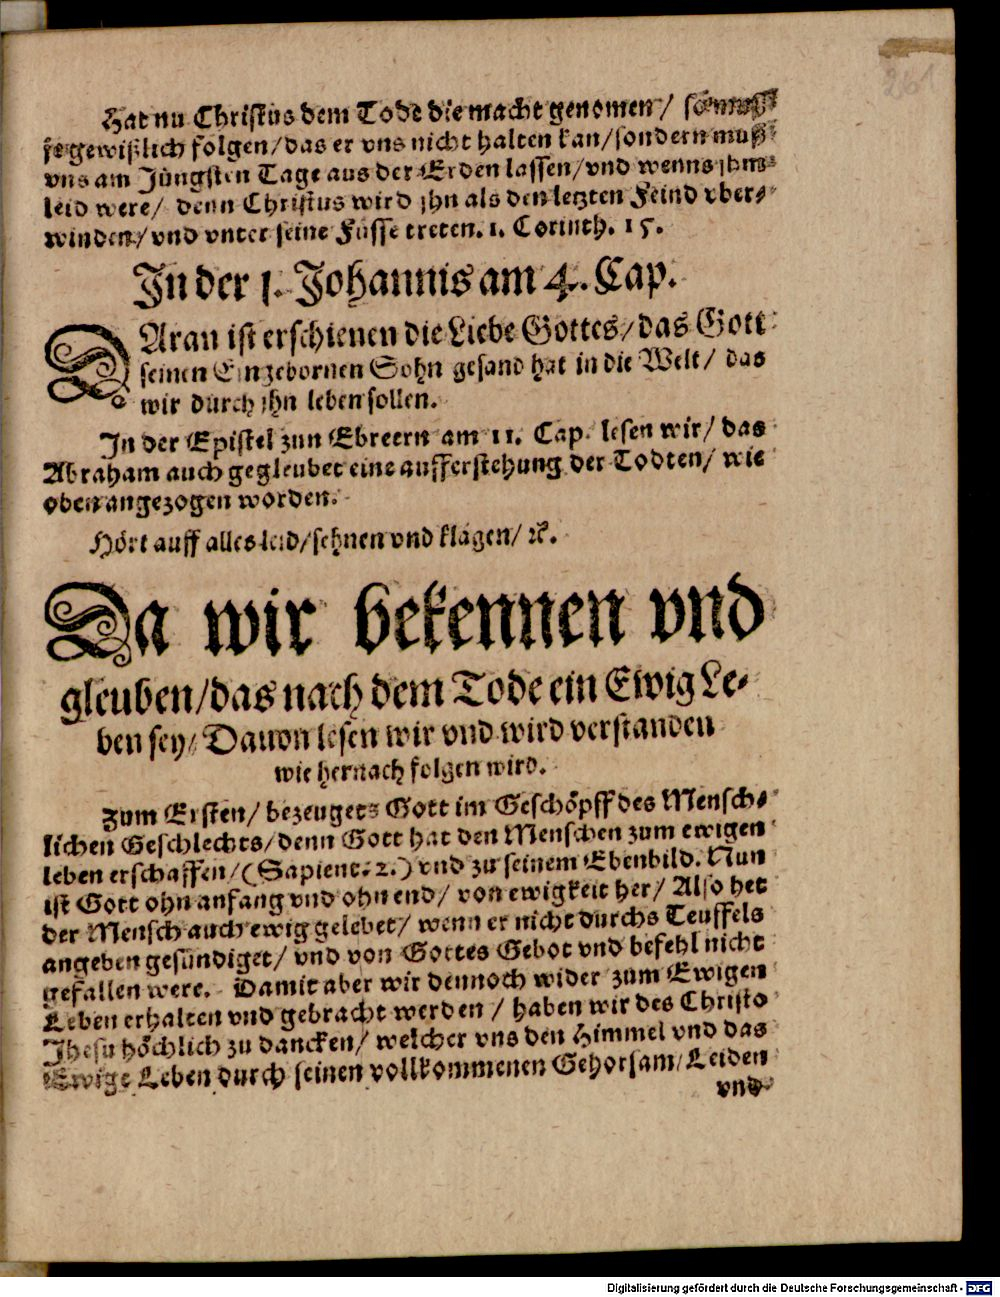 261
Hat nu Christus dem Tode die macht genomen / so mus
je gewißlich folgen / das er vns nicht halten kan / sondern muß
vns am Jüngsten Tage aus der Erden lassen / vnd wenns jhm
leid were / denn Christus wird jhn als den letzten Feind vber-
winden / vnd vnter seine Füsse treten. 1. Corinth. 15.
In der 1. Johannis am 4. Cap.
DAran ist erschienen die Liebe Gottes / das Gott
seinen Eingebornen Sohn gesand hat in die Welt / das
wir durch jhn leben sollen.
In der Epistel zun Ebreern am 11. Cap. lesen wir / das
Abraham auch gegleubet eine aufferstehung der Todten / wie
oben angezogen worden.
Hört auff alles leid / sehnen vnd klagen / ꝛc.
Da wir bekennen vnd
gleuben / das nach dem Tode ein Ewig Le-
ben sey / Dauon lesen wir vnd wird verstanden
wie hernach folgen wird.
Zum Ersten / bezeuget Gott im Geschöpff des Mensch-
lichen Geschlechts / denn Gott hat den Menschen zum ewigen
leben erschaffen / (Sapient. 2.) vnd zu seinem Ebenbild. Nun
ist Gott ohn anfang vnd ohn end / von ewigkeit her / Also het
der Mensch auch ewig gelebet / wenn er nicht durchs Teuffels
angeben gesündiget / vnd von Gottes Gebot vnd befehl nicht
gefallen were. Damit aber wir dennoch wider zum Ewigen
Leben erhalten vnd gebracht werden / haben wir des Christo
Jhesu höchlich zu dancken / welcher vns den Himmel vnd das
Ewige Leben durch seinen vollkommenen Gehorsam / Leiden
vnd
Digitalisierung gefördert durch die Deutsche Forschungsgemeinschaft - DFG